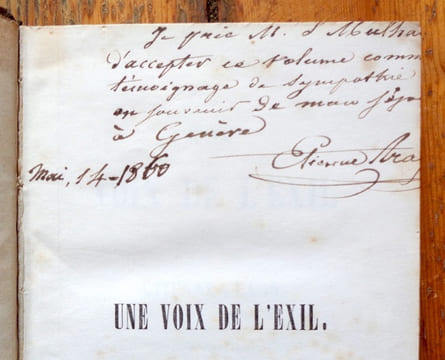 Je prie M. J Mulha
d'accepter ce volume comm
témoignage de sympathie
en souvenir de mon séjo
à Genève
Etienne Ara
Mai, 14-1860
UNE VOIX DE L'EXIL.